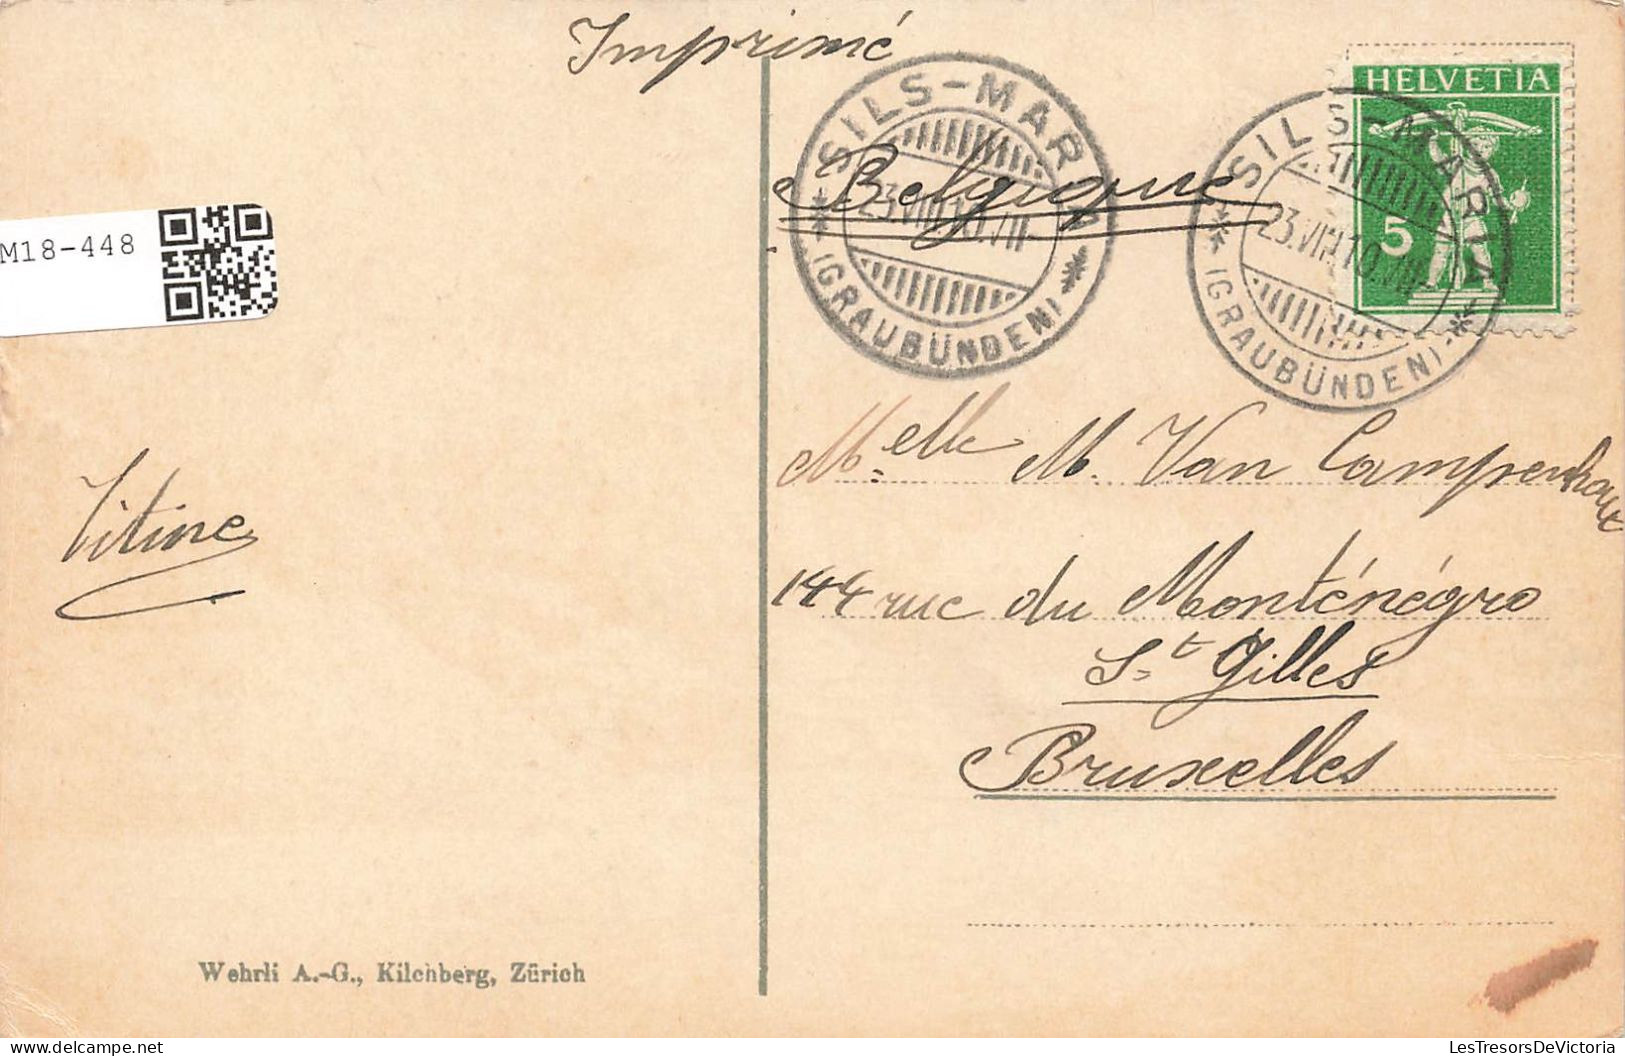 Imprimé
SILS-MARIA
23.VIII.10.VII-
(GRAUBÜNDEN)
HELVETIA
5
SILS-MARIA
23.VIII.10.VII-
(GRAUBÜNDEN)
Belgique
M18-448
Melle M. Van Campenhout
Titine
144 rue du Monténégro
St Gilles
Bruxelles
Wehrli A.-G., Kilchberg, Zürich
LesTresorsDeVictoria